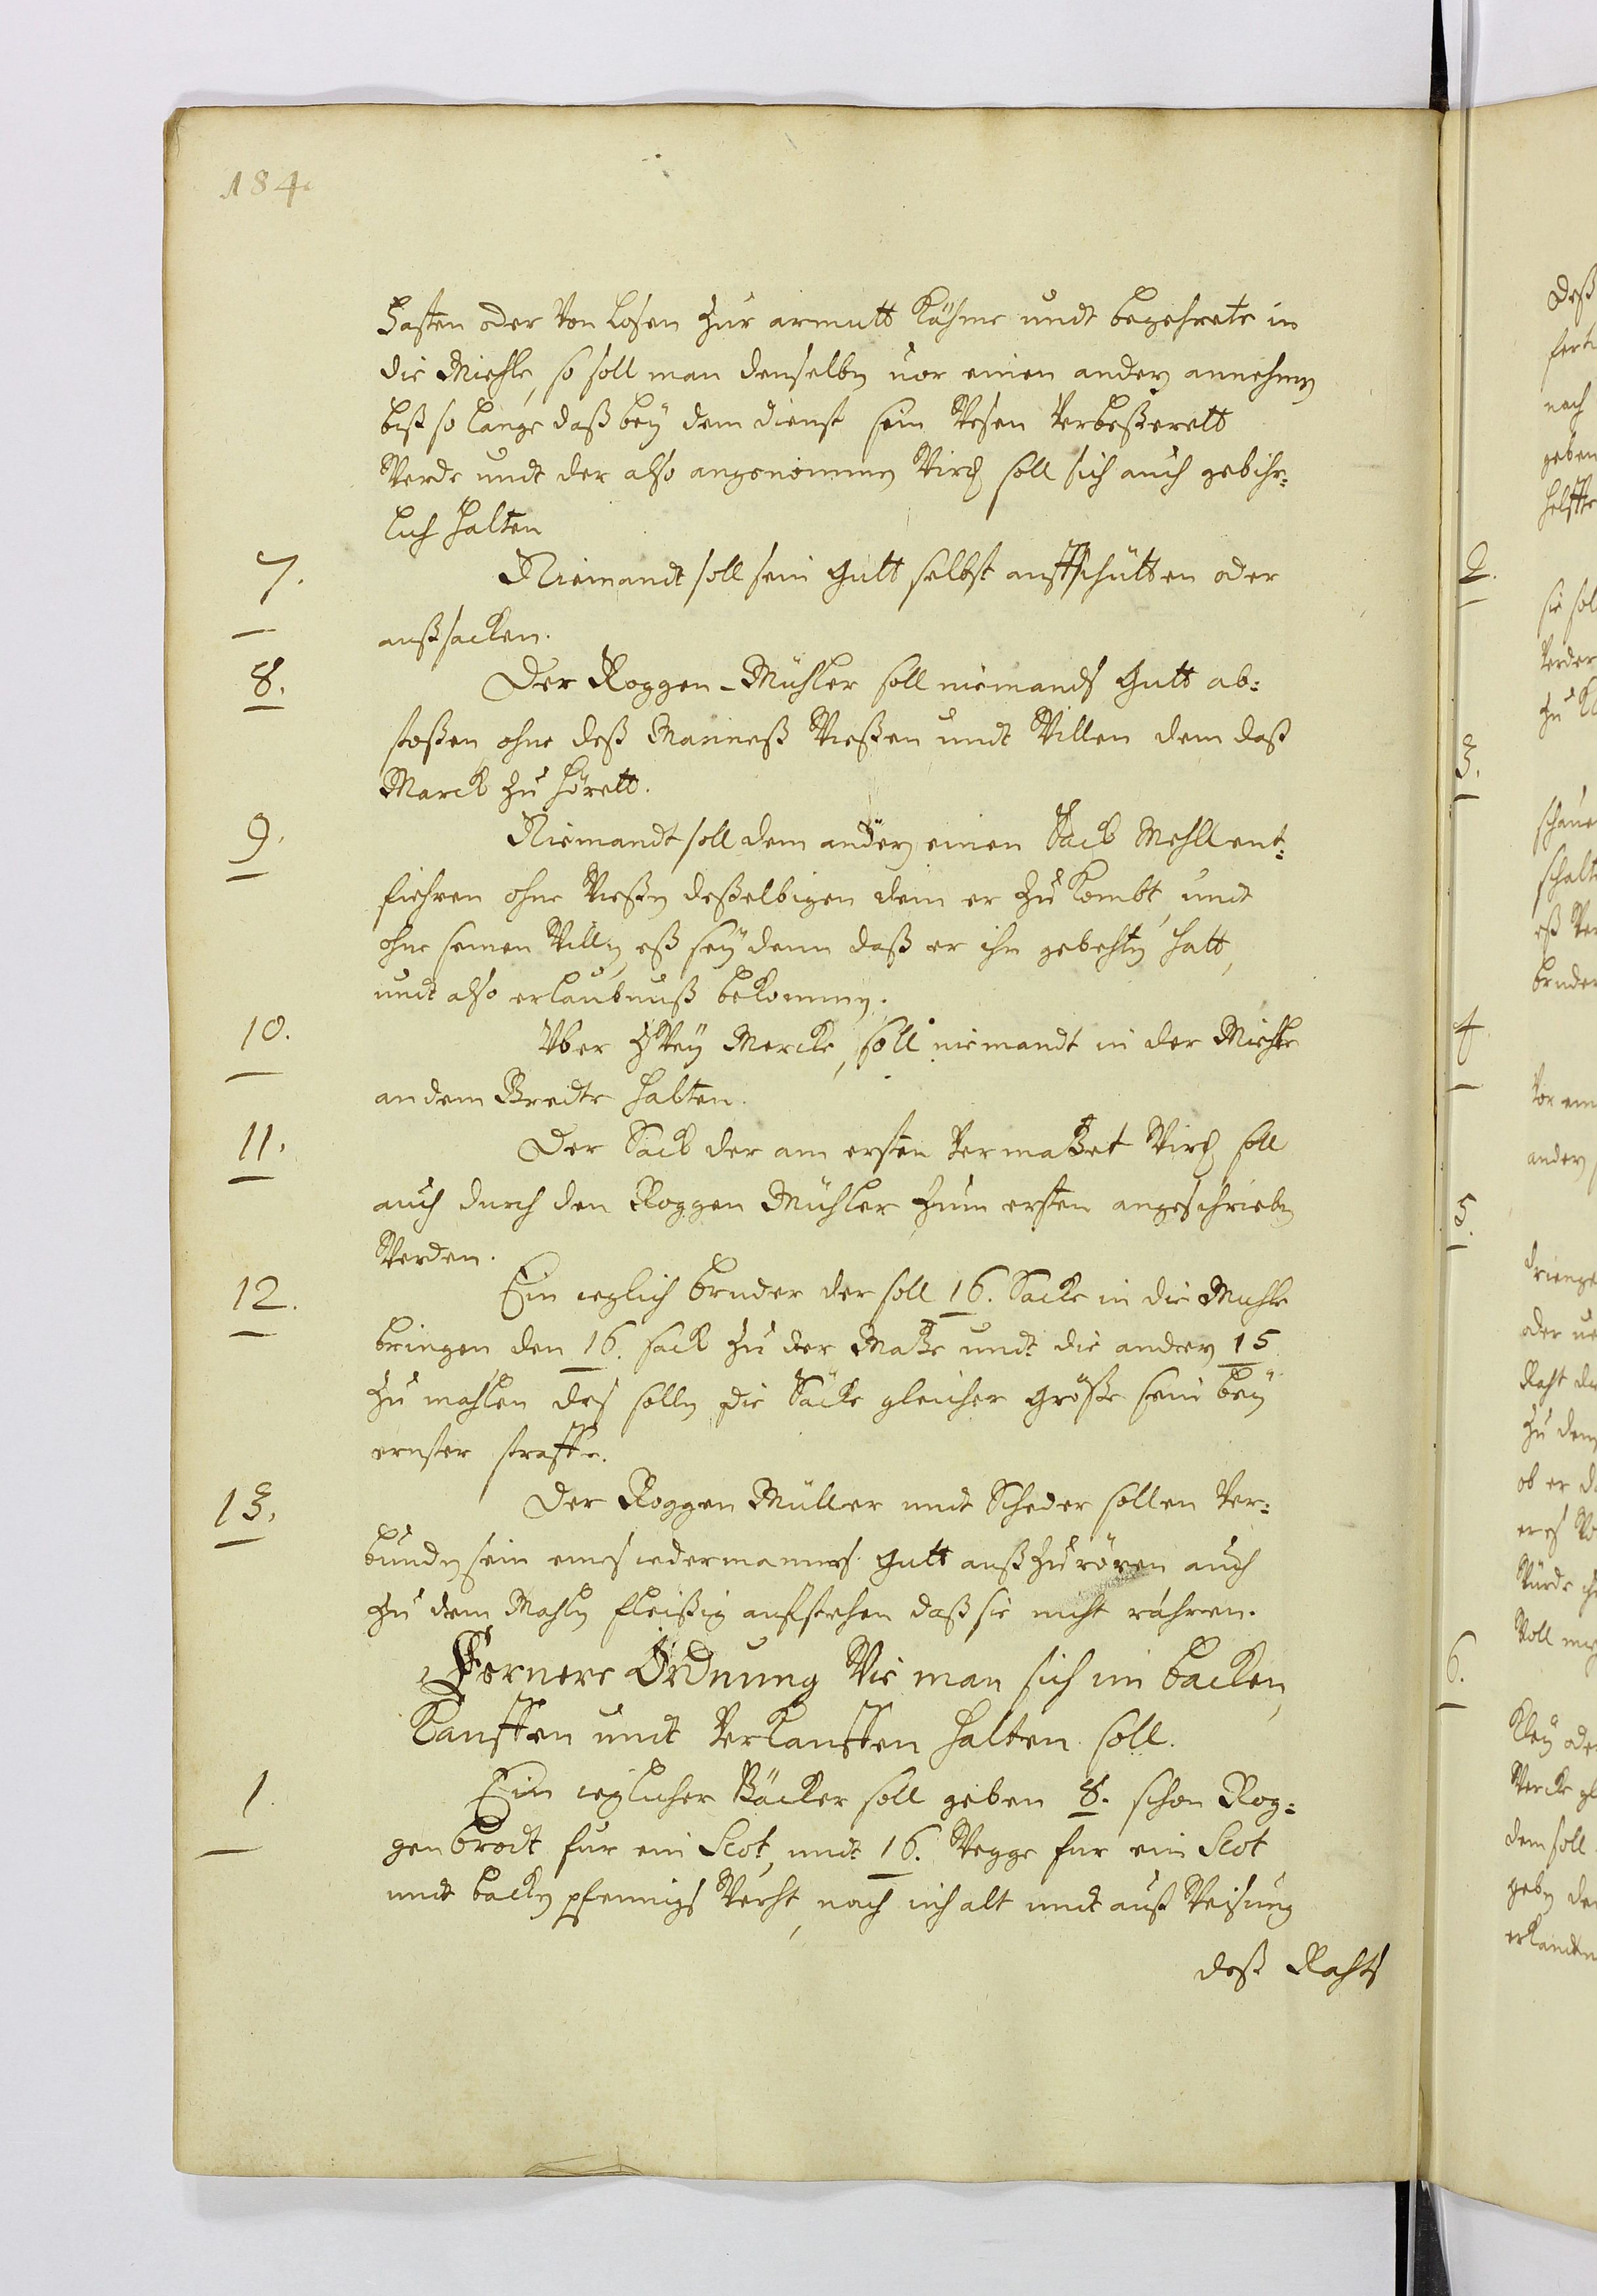 184.
Hasten oder von losen zur armutt Kähme undt begehrete in
die Miehle, so soll man denselbn vor einen andern annehmen
biß so lange daß bey dem dienst sein Wesen verbeßerett
Werde undt der also angenommen Wird soll sich auch gebihr=
lich halten
7. Niemandt soll sein Gutt selbst auffschütten oder
außsacken.
8. Der Roggen-Mühler soll niemands Gutt ab=
stoßen ohne deß Manneß Wießen undt Willen dem daß
Marck zu hörett.
9. Niemandt soll dem andern einen Sack Mehll ent=
fiehren ohne Wießn deßelbigen dem er zu Kombt, undt
ohne seinen Willn, eß sey denn daß er ihn gebehtn hatt,
undt also erlaubnuß bekommen.
10. Vber Zwey Mercke, soll niemandt in der Miehle
an dem Bredte halten.
11. Der Sack der am ersten vermatzet Wird soll
auch durch den Roggen Mühler zum ersten angeschriebn
Werden.
12. Ein ieglich bruder der soll 16. Sacke in die Muhle
bringen den 16. sack zu der Matze undt die andern 15
zu mahlen des solln die Säcke gleicher größe sein bey
ernster straffe.
13. Der Roggen Müller undt Scheder sollen ver=
bundn sein eines iedermannes gutt auß zu rören auch
zu dem Mahln fleißig aufstehen daß sie nicht rähren.
Fernere Ordnung Wie man sich im backen,
Kauffen undt verkauffen halten soll.
1. Ein ieglicher Bäcker soll geben 8. schon Rog=
genbrodt fur ein Scot, undt 16. Wegge fur ein Scot
undt backn pfennigs Werht, nach inhalt undt auß Weisung
deß Rahts
2.
3.
4
5.
6.